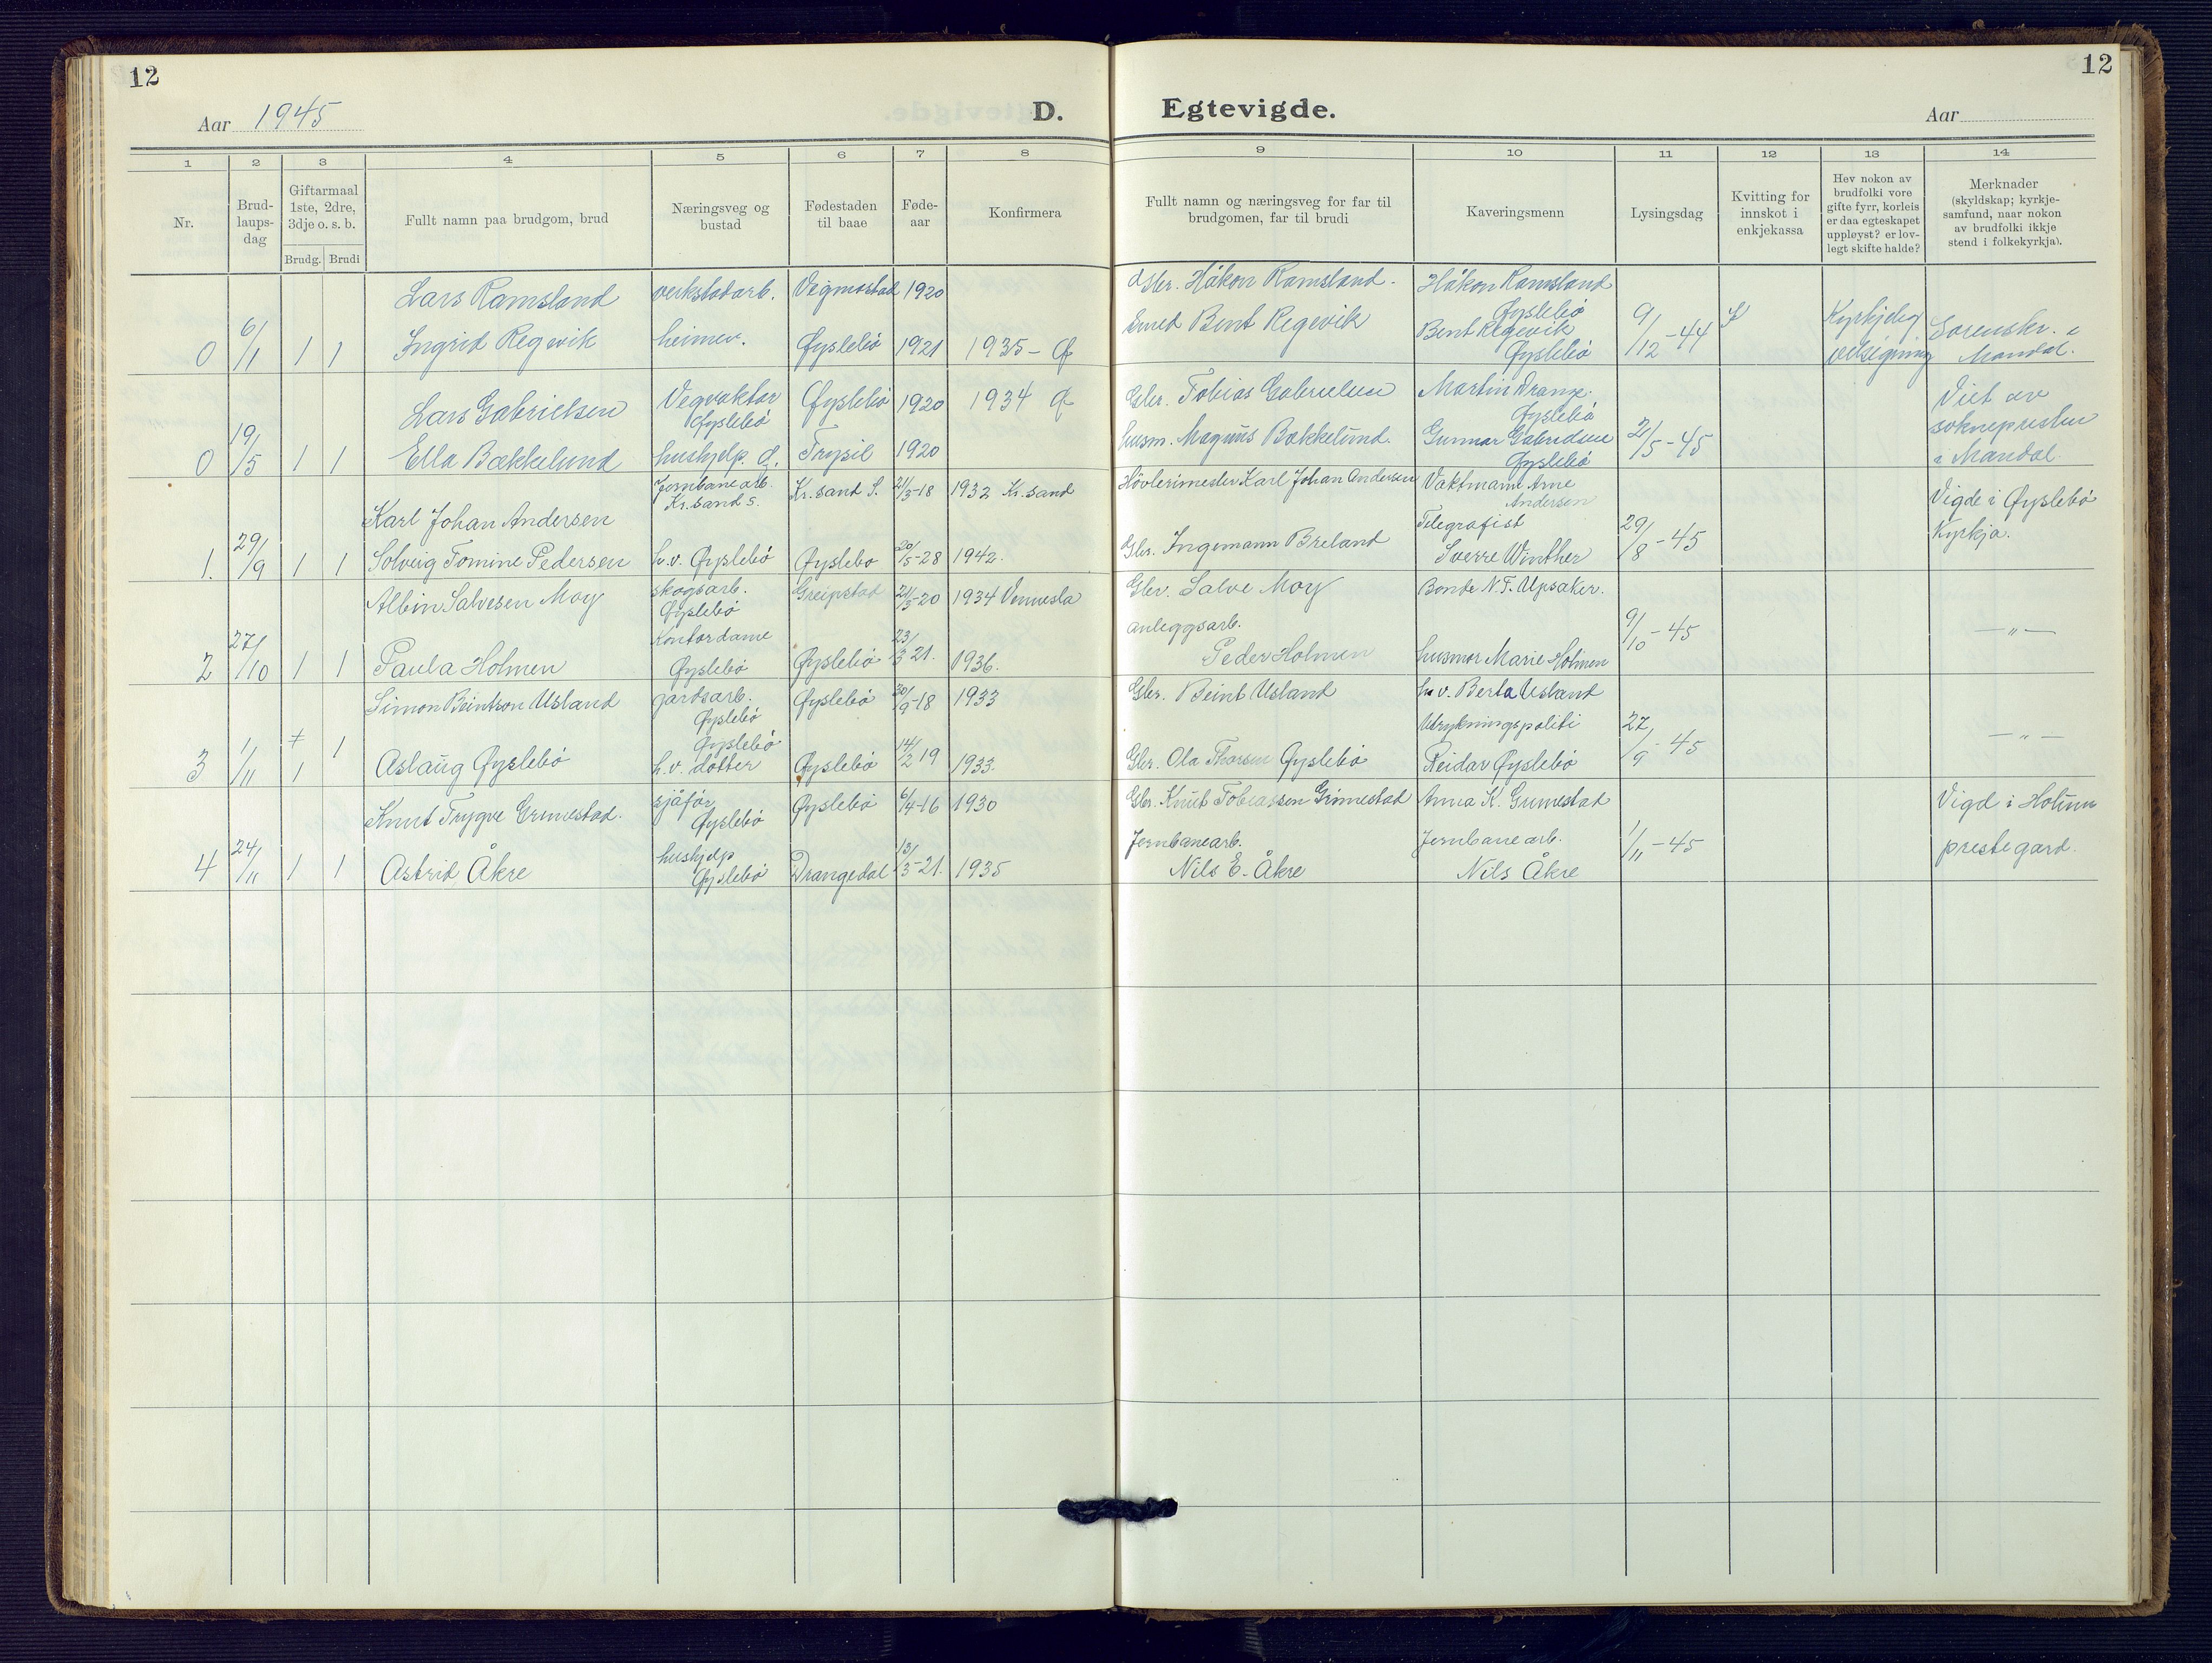 12
12
Aar 1945
D.
Egtevigde.
Aar
1 2 3 4 5 6 7 8 9 10 11 12 13 14
Nr.
Brud-
laups-
dag
Giftarmaal
1ste, 2dre,
3dje o. s. b.
Brudg. Brudi
Fullt namn paa brudgom, brud
Næringsveg og
bustad
Fødestaden
til baae
Føde-
aar
Konfirmera
Fullt namn og næringsveg for far til
brudgomen, far til brudi
Kaveringsmenn
Lysingsdag
Kvitting for
innskot i
enkjekassa
Hev nokon av
brudfolki vore
gifte fyrr, korleis
er daa egteskapet
uppløyst? er lov-
legt skifte halde?
Merknader
(skyldskap; kyrkje-
samfund, naar nokon
av brudfolki ikkje
stend i folkekyrkja).
Lars Ramsland verkstadarb. Vigmostad 1920
Håkon Ramsland. Håkon Ramsland
Øyslebö
0 6/1 1 1 Ingrid Regevik heimev. Øyslebö 1921 1935 - Ø
Smed Bent Regevik Bent Regevik
Øyslebö
9/12-44
Kyrkjeleg
velsigning
Sorenskr. i
Mandal.
Lars Gabrielsen Vegvaktar
Øyslebö
Øyslebö 1920 1934 Ø
Gbr. Tobias Gabrielsen Martin Drange.
Øyslebö
0 19/5 1 1 Ella Bækkelund hushjelp. Ø. Trysil 1920
husm. Magnus Bækkelund. Gunnar Gabrielsen
Øyslebö
2/5-45
Viet av
soknepresten
i Mandal.
Karl Johan Andersen Jernbanearb.
Kr.sand S.
Kr.sand S. 21/3-18 1932 Kr.sand
Hövlerimester Karl Johan Andersen Vaktmann Arne
Andersen
1. 29/9 1 1 Solveig Tomine Pedersen h.v. Øyslebö Øyslebo 20/5-28 1942.
Gbr. Ingemann Breland Telegrafist
Sverre Winther
29/8-45
Vigde i Øyslebö
Kyrkja.
Albin Salvesen Moy skogsarb.
Øyslebö
Greipstad 21/3-20 1934 Vennesla
Gbr. Salve Moy Bonde N.T. Upsaker.
2 27/10 1 1 Paula Holmen Kontordame
Øyslebö
Øyslebö 23/3 21. 1936.
anleggsarb.
Peder Holmen husmor Marie Holmen
9/10-45 —"—
Simon Beintson Usland gardsarb.
Øyslebö
Øyslebö 30/9-18 1933
Gbr. Beint Usland h.v. Berta Usland
3 1/11 1 1 Aslaug Øyslebö Øyslebö
h.v. dotter
Øyslebö 14/2 19 1933.
Gbr. Ola Thorsen Øyslebö Utrykningspoliti
Reidar Øyslebö
27/9-45 —"—
Knut Trygve Grimestad. sjåfør
Øyslebö
Øyslebö 6/4-16 1930
Gbr. Knut Tobiassen Grimestad Anna K. Grimestad
4 24/11 1 1 Astrid Åkre hushjelp
Øyslebö
Drangedal 13/3-21. 1935
Jernbanearb.
Nils E. Åkre
Jernbanearb.
Nils Åkre
1/11-45
Vigd i Holum
prestegard.